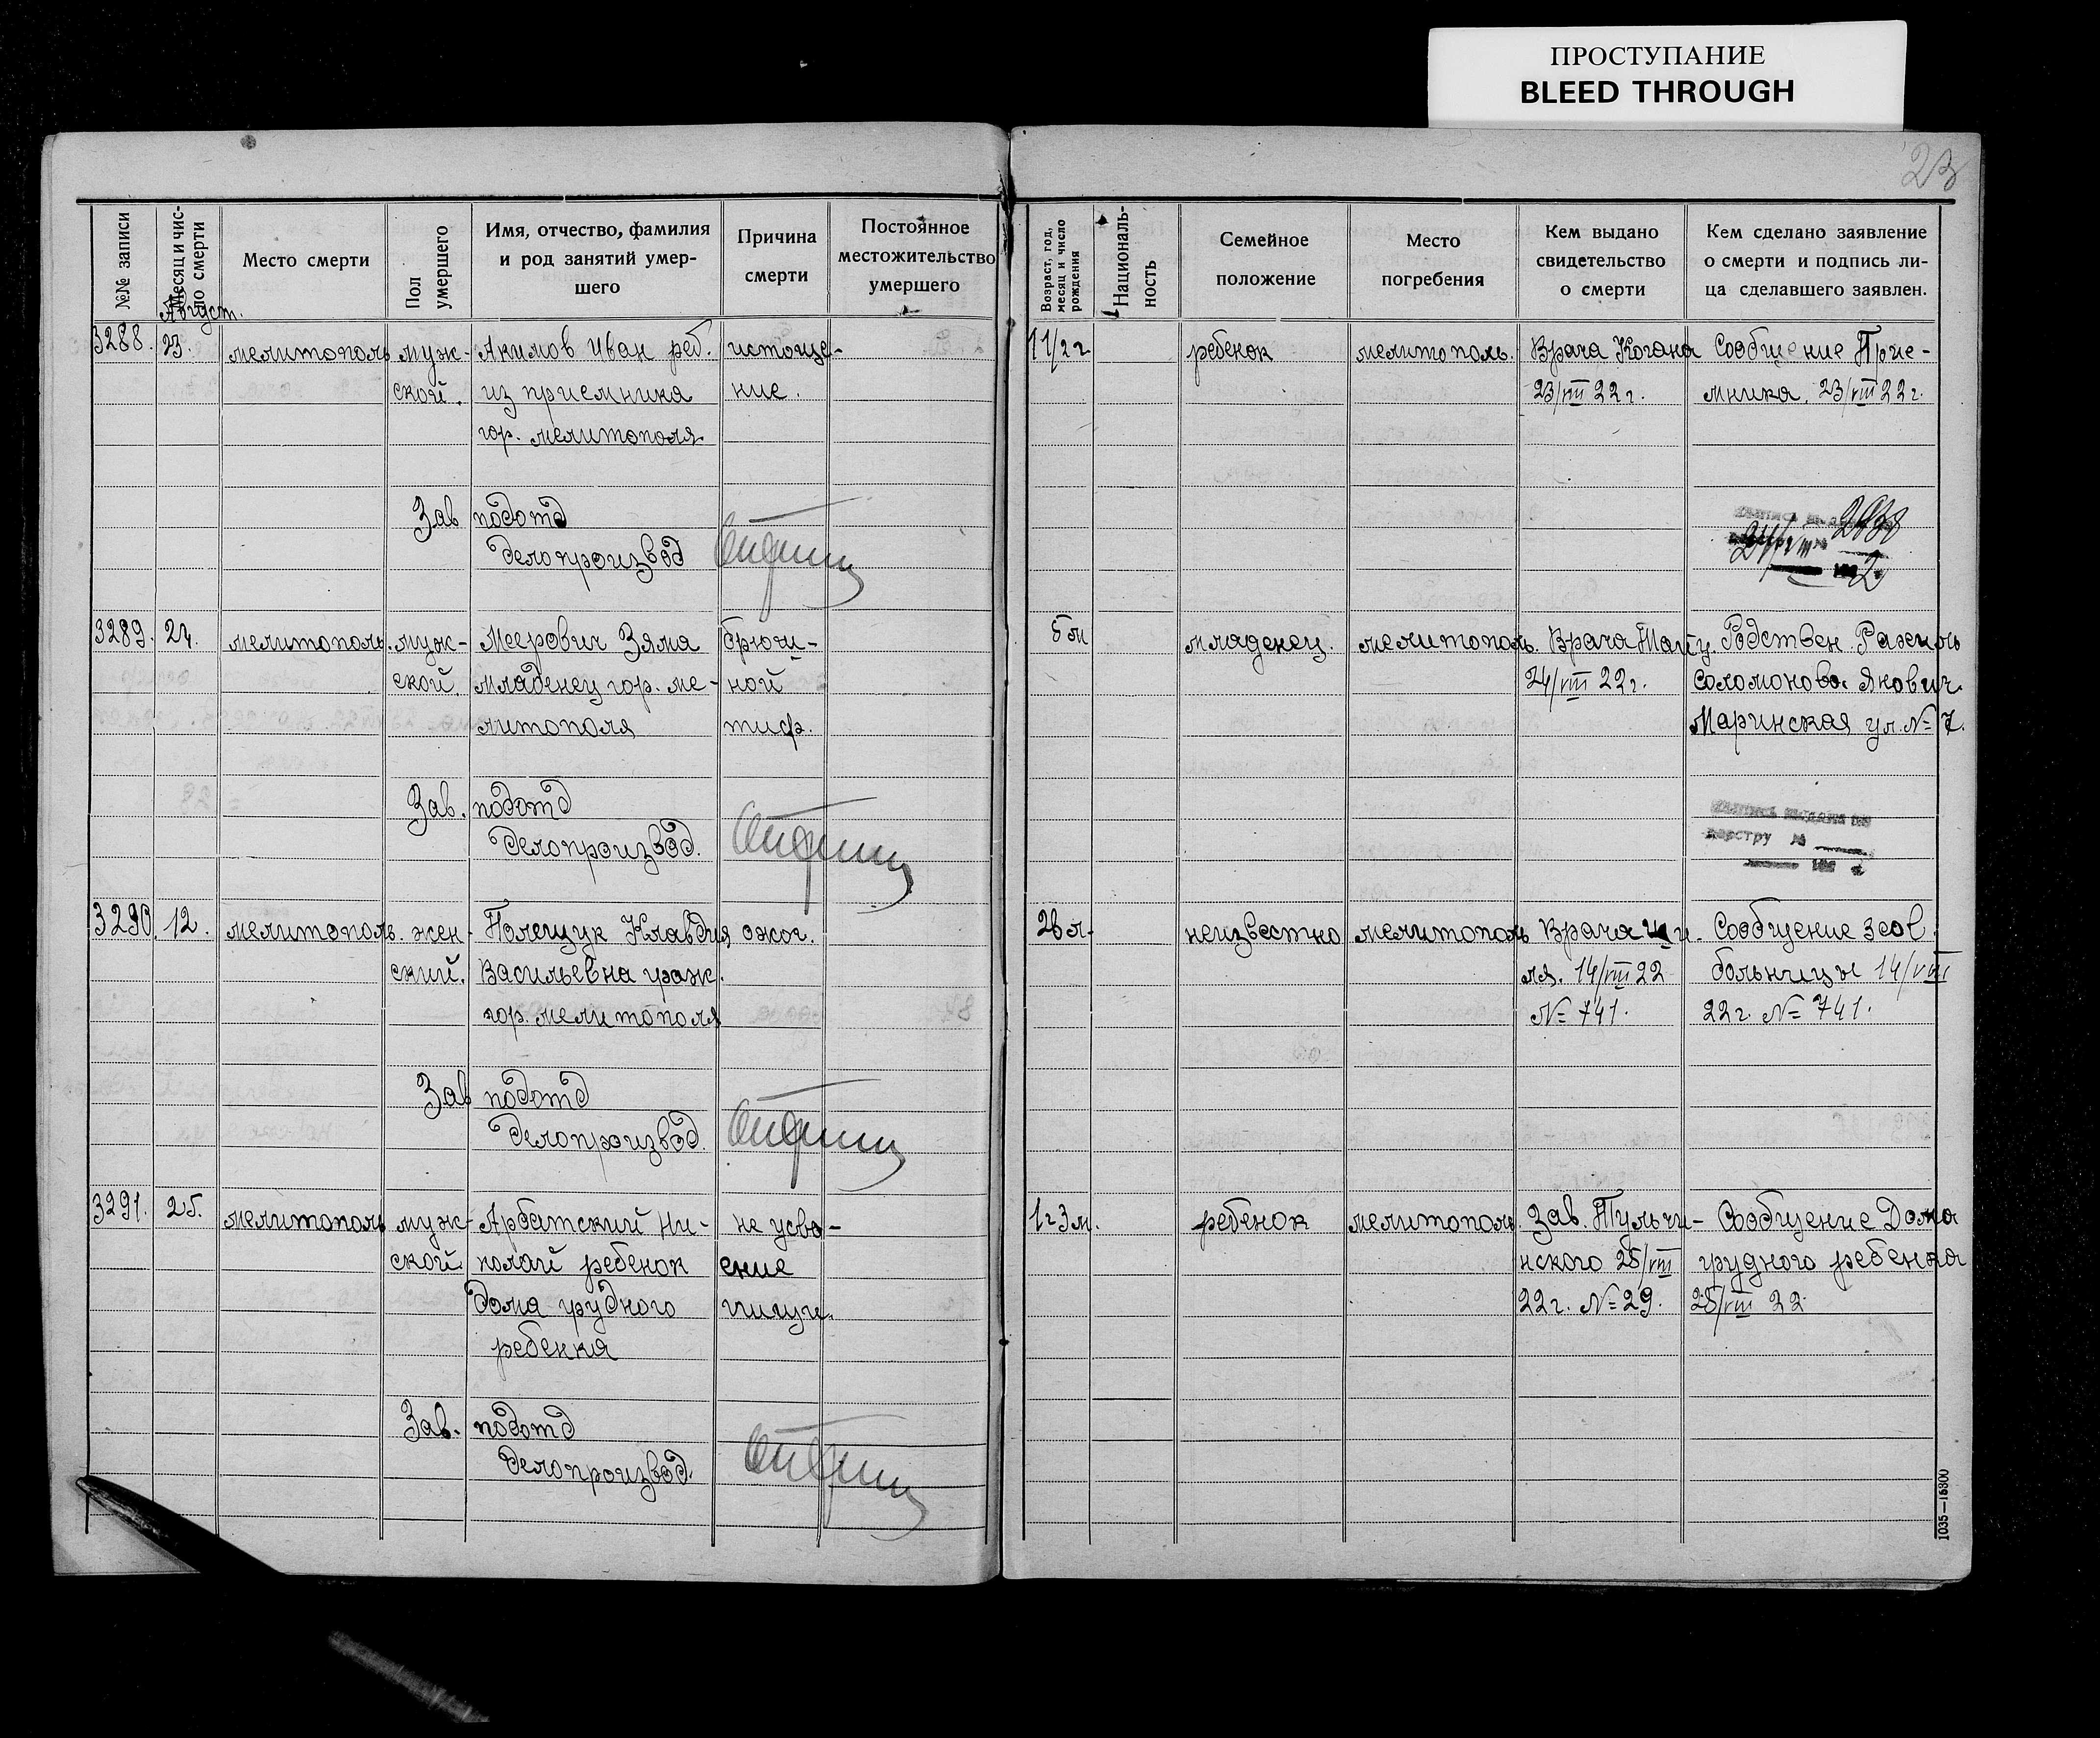 ПРОСТУПАНИЕ
BLEED THROUGH
23
№№ записи
Месяц и чис-
ло смерти
Место смерти
Пол
умершего
Имя, отчество, фамилия
и род занятий умер-
шего
Причина
смерти
Постоянное
местожительство
умершего
Возраст, год,
месяц и число
рождения
Националь-
ность
Семейное
положение
Место
погребения
Кем выдано
свидетельство
о смерти
Кем сделано заявление
о смерти и подпись ли-
ца сделавшего заявлен.
Август.
3288. 23. мелитополь муж- Акимов Иван реб. истоще- 1 1/2 г ребенок мелитополь. Врача Когана Сообщение Прие-
ской. из приемника ние. 23/VIII 22 г. мника. 23/VIII 22 г.
гор. мелитополя
Зав подотд
делопроизвод
2838
3289. 24. мелитополь. муж- Меерович Зяма брюш- 5 м младенец. мелитополь. Врача Родствен.
ской. младенец гор. ме- ной 24/VIII 22 г. Соломонов. Янович.
литополя тиф. Маринская ул. № 7.
Зав. подотд
делопроизвод.
реестру №
3290. 12. мелитополь. жен- Полещук Клавдия ожог. 26 л. неизвестно мелитополь Врача Сообщение
ский. Васильевна граж. 14/VIII 22 больницы 14/VIII
гор. мелитополя № 741. 22 г. № 741.
Зав подотд
делопроизвод.
3291. 25. мелитополь муж- Арбатский Ни- не усво- 1 г 3 м. ребенок мелитополь. Зав. Тульчи- Сообщение Дома
ской. колай ребенок ение нского 25/VIII грудного ребенка
дома грудного пищи. 22 г. № 29. 25/VIII 22
ребенка
Зав. подотд
делопроизвод.
1035—15300